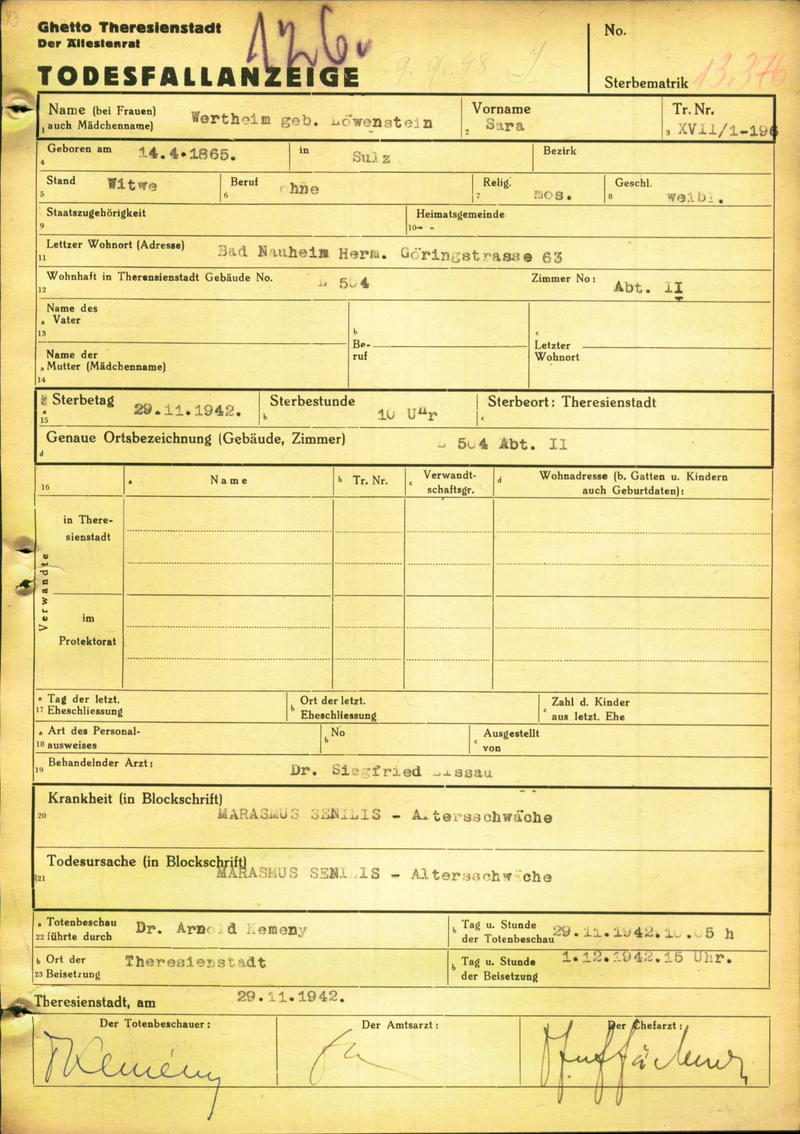 Ghetto Theresienstadt
Der Ältestenrat
TODESFALLANZEIGE
126.
9. 9. 48
No.
Sterbematrik 13.376
Name (bei Frauen) Wertheim geb. Löwenstein
1 auch Mädchenname)
Vorname
2 Sara
Tr. Nr.
3 XVII/1-196
Geboren am 14.4.1865.
4
in Sulz
Bezirk
Stand Witwe
5
Beruf ohne
6
Relig. mos.
7
Geschl. weibl.
8
Staatszugehörigkeit
9
Heimatsgemeinde
10
Lettzer Wohnort (Adresse) Bad Nauheim Herm. Göringstrasse 63
11
Wohnhaft in Therensienstadt Gebäude No. L 504
12
Zimmer No: Abt. II
Name des
a Vater
13
b
Be-
ruf
c
Letzter
Wohnort
Name der
a Mutter (Mädchenname)
14
Sterbetag 29.11.1942.
a
15
Sterbestunde 10 Uhr
b
Sterbeort: Theresienstadt
c
Genaue Ortsbezeichnung (Gebäude, Zimmer) L 504 Abt. II
d
16
a Name
b Tr. Nr.
c Verwandt-
schaftsgr.
d Wohnadresse (b. Gatten u. Kindern
auch Geburtdaten):
Verwandte
in There-
sienstadt
im
Protektorat
a Tag der letzt.
17 Eheschliessung
b Ort der letzt.
Eheschliessung
c Zahl d. Kinder
aus letzt. Ehe
a Art des Personal-
18 ausweises
b No
c Ausgestellt
von
Behandelnder Arzt: Dr. Siegfried Lissau
19
Krankheit (in Blockschrift)
20 MARASMUS SENILIS - Altersschwäche
Todesursache (in Blockschrift)
21 MARASMUS SENILIS - Altersschwäche
a Totenbeschau Dr. Arnold Kemeny
22 führte durch
b Tag u. Stunde
der Totenbeschau 29.11.1942.10.05 h
b Ort der Theresienstadt
23 Beisetzung
b Tag u. Stunde 1.12.1942.15 Uhr.
der Beisetzung
Theresienstadt, am 29.11.1942.
Der Totenbeschauer:
Kemény
Der Amtsarzt:
Der Chefarzt: